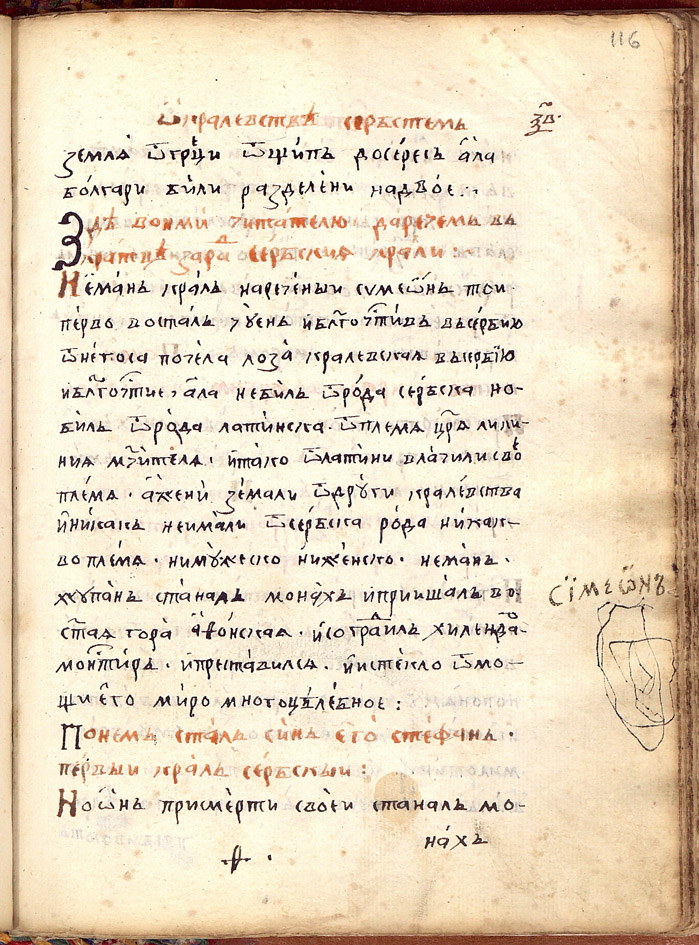 116
Ѿ кралевствѣ сербстемъ
землѧ ѿ грѣци ѿ щипъ до сересъ а҆ла
болгари били разделени на двое ⁘
Здѣ воими читателю да речемъ въ
кратцѣ за ра сербскиѧ крали :
Неманъ краль нареченыи сумеѡнъ тои
перво восталъ и҆ бл҃гоч҃тивъ въ сербию
ѿ него са почела лоза кралевская въ сербїю
и҆ бл҃гоч҃тие, а҆ла не билъ ѿ рода сербска но
билъ ѿ рода латинска · ѿ племѧ цр҃ѧ лики-
ниѧ мч҃ителѧ · и҆ тако ѿ латини влачили свое
племѧ · а҆ жени земали ѿ други кралевства
и҆ никакъ не имали ѿ сербска рода никак-
во племѧ · ни мужеско ни женско · неманъ ·
жупанъ станалъ монахъ и҆ пришалъ во
ст҃ая гора аѳонская · и҆ согради́лъ хиленда-
монт҃иръ · и҆ преставилсѧ · и҆ истекло ѿ мо-
щи его миро многоцѣлебное :
По немъ сталъ синъ его стефанъ ·
первыи краль сербскыи :
Но ѡнъ при смерти своеи станалъ мо-
нахъ
сїмеѡнъ